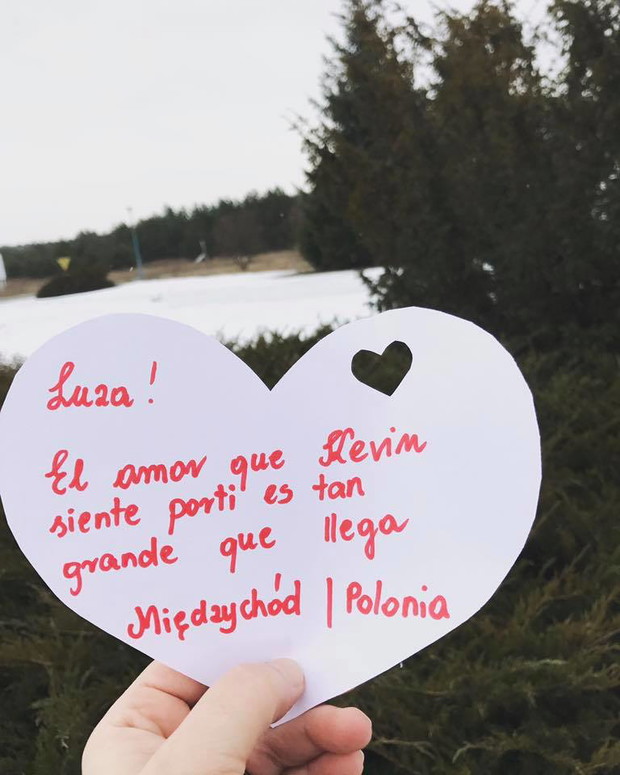 Luza!
El amor que Kevin
siente porti es tan
grande que llega
Międzychód | Polonia